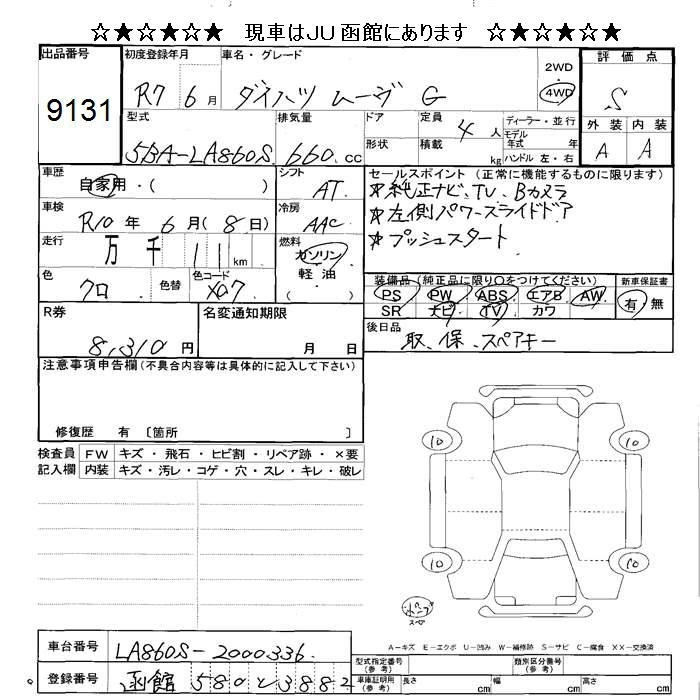 ☆★☆★☆★ 現車はJU函館にあります ☆★☆★☆★
出品番号 初度登録年月 車名・グレード 2WD 評価点
9131 R7 6月 ダイハツ ムーヴ G 4WD S
型式 排気量 ドア 定員 4人 ディーラー・並行 外装 内装
モデル年式 年
5BA-LA860S 660cc 形状 積載 kg ハンドル 左・右 A A
車歴 シフト セールスポイント (正常に機能するものに限ります)
自家用・( ) AT ☆純正ナビ、TV、Bカメラ
車検 冷房 ☆左側パワースライドドア
R10年 6月(8日) AAC ☆プッシュスタート
走行 燃料
万 千 11km ガソリン
色 色替 色コード 軽油 装備品 (純正品に限り○をつけてください) 新車保証書
クロ X07 ( ) PS PW ABS エアB AW 有 無
SR ナビ TV カワ
R券 名変通知期限 後日品
8,310円 月 日 取、保、スペアキー
注意事項申告欄(不具合内容等は具体的に記入して下さい)
修復歴 有 〔箇所 〕
検査員 FW キズ・飛石・ヒビ割・リペア跡・×要
記入欄 内装 キズ・汚レ・コゲ・穴・スレ・キレ・破レ
10 10
10 10
スペア
A-キズ E-エクボ U-凹み W-補修跡 S-サビ C-腐食 XX-交換済
車台番号 LA860S-2000336 型式指定番号(参考) 類別区分番号(参考)
登録番号 函館 580 と 3882 車庫証明用(参考) 長さ cm 幅 cm 高さ cm